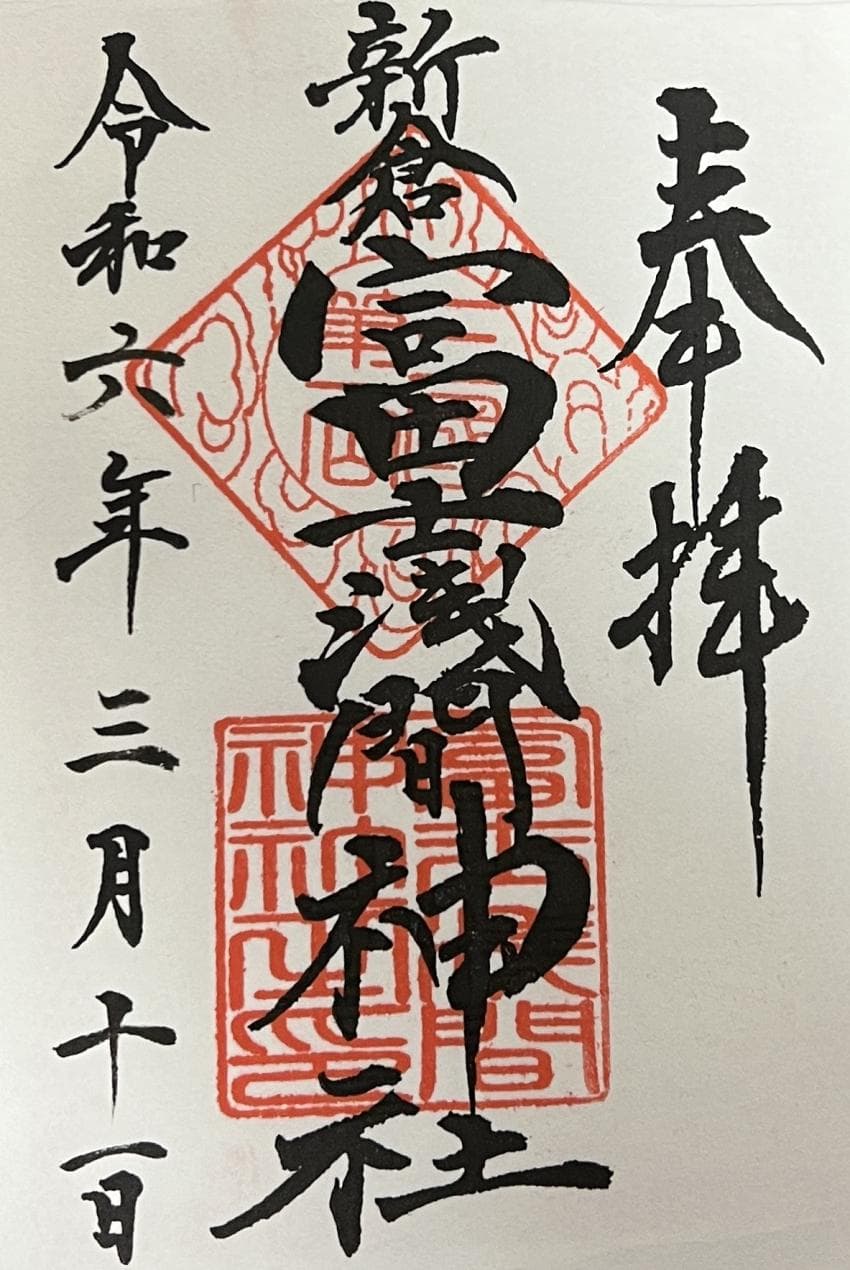 奉拝
新倉富士浅間神社
令和六年三月十一日
富士浅間
神社之印